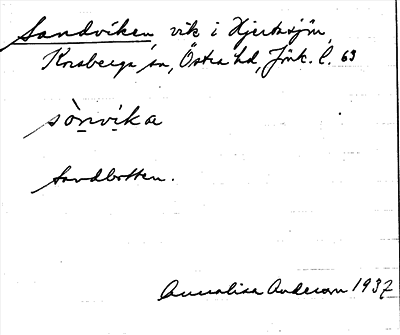 Sandviken, vik i Hjertasjön,
Korsberga sn, Östra hd, Jönk. l. 63
sònvika
Sandbotten.
Annalisa Anderson 1937